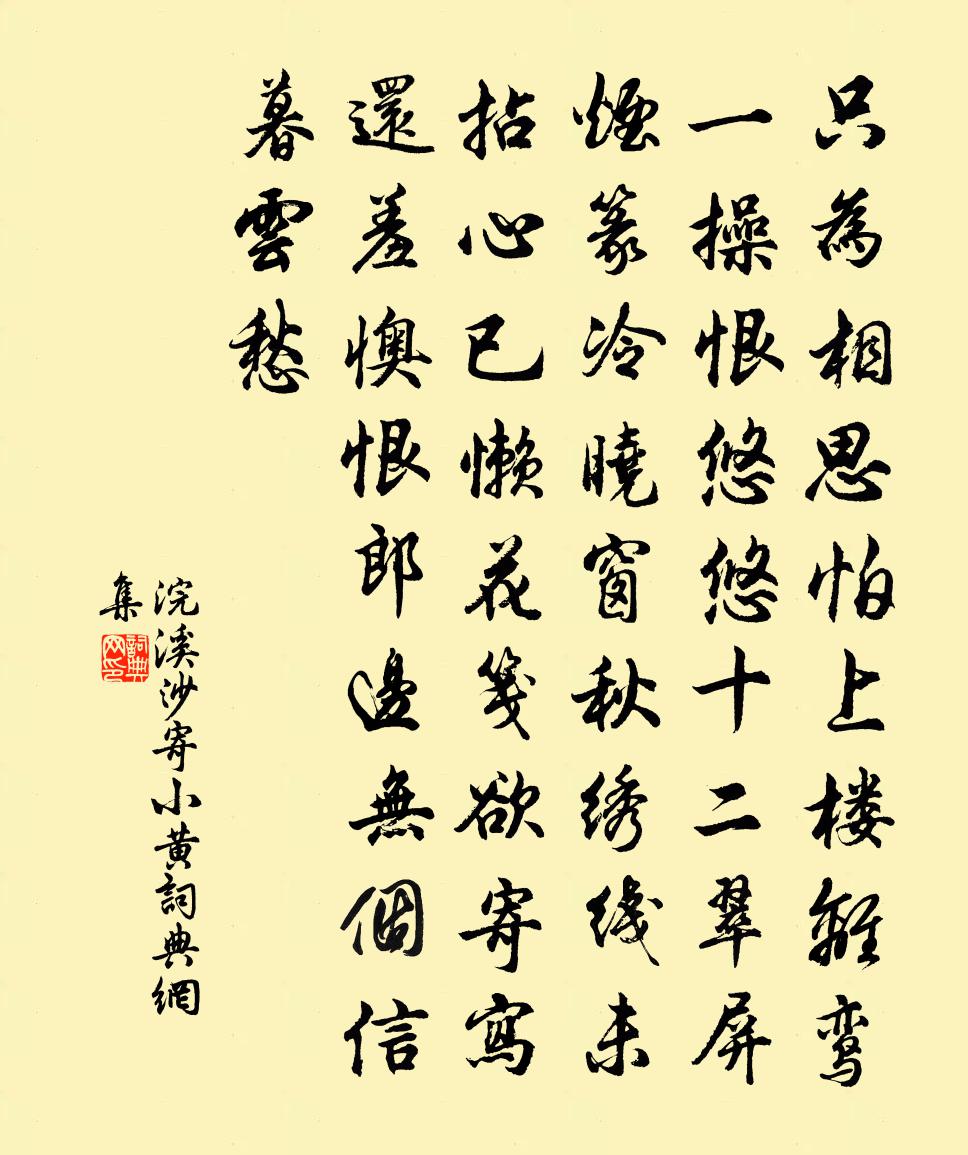 只為相思怕上楼離鸾
一操恨悠悠十二翠屏
煙篆冷曉窗秋绣线未
拈心已懒花笺欲寄寫
還羞懊恨郎邊無個信
暮雲愁
浣溪沙寄小黃詞典網
集
詞典
网印